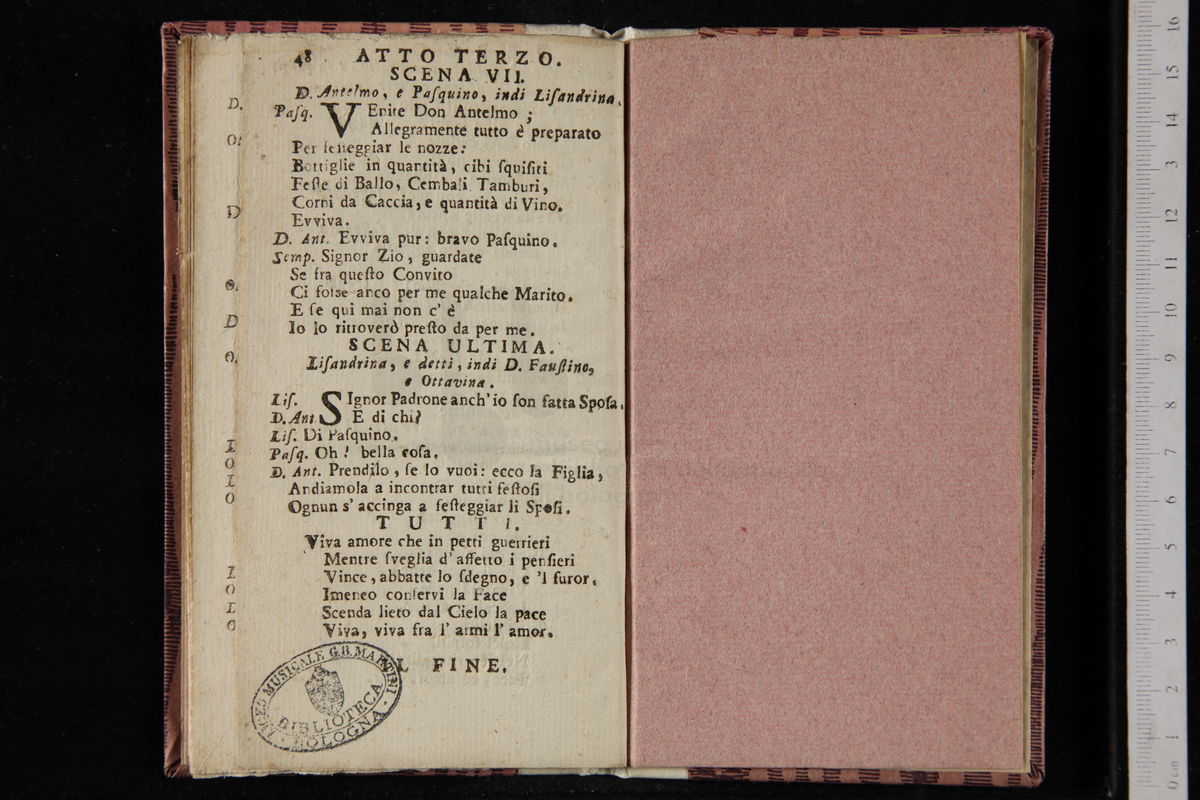 48 . ATTO TERZO.
SCENA VII.
D. Antelmo, e Paſquino, indi Liſandrina.
Paſq. VEnite Don Antelmo ;
Allegramente tutto è preparato
Per feſteggiar le nozze:
Bottiglie in quantità, cibi ſquiſiti
Feſte di Ballo, Cembali Tamburi,
Corni da Caccia, e quantità di Vino.
Evviva.
D. Ant. Evviva pur: bravo Paſquino.
Semp. Signor Zio, guardate
Se fra queſto Convito
Ci foſſe anco per me qualche Marito.
E ſe qui mai non c' è
Io lo ritroverò preſto da per me.
SCENA ULTIMA.
Liſandrina, e detti, indi D. Fauſtino,
e Ottavina.
Liſ. SIgnor Padrone anch'io ſon fatta Spoſa.
D. Ant. E di chi?
Liſ. Di Paſquino.
Paſq. Oh! bella coſa.
D. Ant. Prendilo, ſe lo vuoi: ecco la Figlia,
Andiamola a incontrar tutti feſtoſi
Ognun s' accinga a feſteggiar li Spoſi.
TUTTI.
Viva amore che in petti guerrieri
Mentre ſveglia d' affetto i penſieri
Vince, abbatte lo ſdegno, e 'l furor.
Imeneo conſervi la Face
Scenda lieto dal Cielo la pace
Viva, viva fra l' armi l' amor.
IL FINE.
LICEO MUSICALE G.B. MARTINI
BIBLIOTECA
BOLOGNA
D.
D
D
0 cm 1 2 3 4 5 6 7 8 9 10 11 12 13 14 15 16